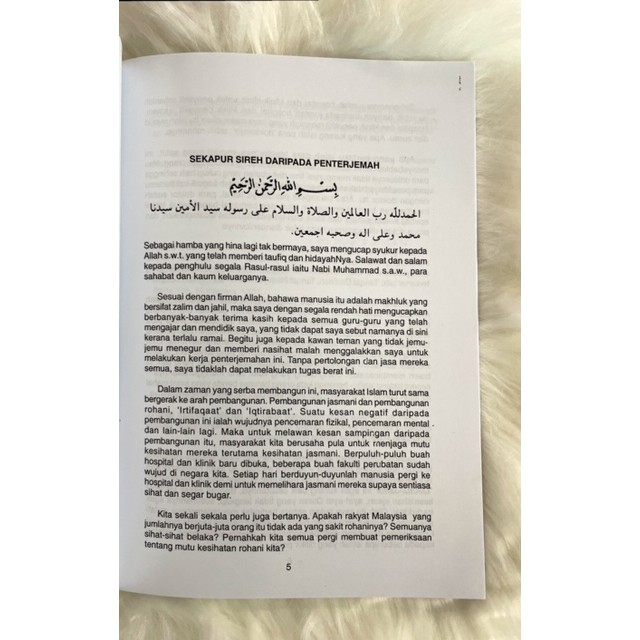 SEKAPUR SIREH DARIPADA PENTERJEMAH
بِسْمِ اللهِ الرَّحْمٰنِ الرَّحِيْمِ
الحمدلله رب العالمين والصلاة والسلام على رسوله سيد الأمين سيدنا
محمد وعلى اله وصحبه اجمعين.
Sebagai hamba yang hina lagi tak bermaya, saya mengucap syukur kepada
Allah s.w.t. yang telah memberi taufiq dan hidayahNya. Salawat dan salam
kepada penghulu segala Rasul-rasul iaitu Nabi Muhammad s.a.w., para
sahabat dan kaum keluarganya.
Sesuai dengan firman Allah, bahawa manusia itu adalah makhluk yang
bersifat zalim dan jahil, maka saya dengan segala rendah hati mengucapkan
berbanyak-banyak terima kasih kepada semua guru-guru yang telah
mengajar dan mendidik saya, yang tidak dapat saya sebut namanya di sini
kerana terlalu ramai. Begitu juga kepada kawan teman yang tidak jemu-
jemu menegur dan memberi nasihat malah menggalakkan saya untuk
melakukan kerja penterjemahan ini. Tanpa pertolongan dan jasa mereka
semua, saya tidaklah dapat melakukan tugas berat ini.
Dalam zaman yang serba membangun ini, masyarakat Islam turut sama
bergerak ke arah pembangunan. Pembangunan jasmani dan pembangunan
rohani, 'Irtifaqaat' dan 'Iqtirabaat'. Suatu kesan negatif daripada
pembangunan ini ialah wujudnya pencemaran fizikal, pencemaran mental
dan lain-lain lagi. Maka untuk melawan kesan sampingan daripada
pembangunan itu, masyarakat kita berusaha pula untuk menjaga mutu
kesihatan mereka terutama kesihatan jasmani. Berpuluh-puluh buah
hospital dan klinik baru dibuka, beberapa buah fakulti perubatan sudah
wujud di negara kita. Setiap hari berduyun-duyunlah manusia pergi ke
hospital dan klinik demi untuk memelihara jasmani mereka supaya sentiasa
sihat dan segar bugar.
Kita sekali sekala perlu juga bertanya. Apakah rakyat Malaysia yang
jumlahnya berjuta-juta orang itu tidak ada yang sakit rohaninya? Semuanya
sihat-sihat belaka? Pernahkah kita semua pergi membuat pemeriksaan
tentang mutu kesihatan rohani kita?
5